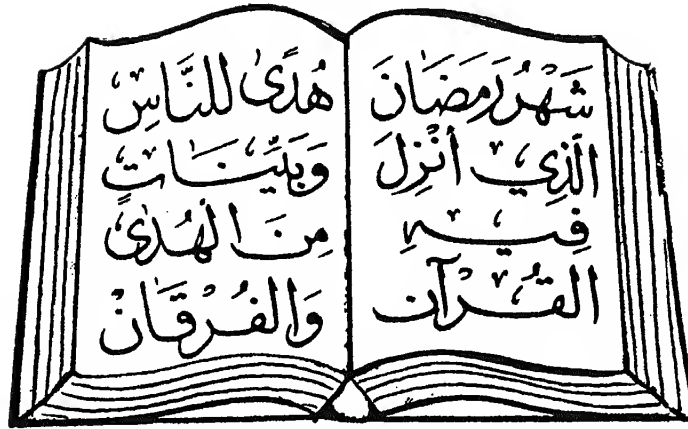 شَهْرُ رَمَضَانَ
الَّذِي أُنْزِلَ
فِيهِ
القُرْآن
هُدًى لِلنَّاسِ
وَبَيِّنَاتٍ
مِنَ الْهُدَىٰ
وَالْفُرْقَانْ